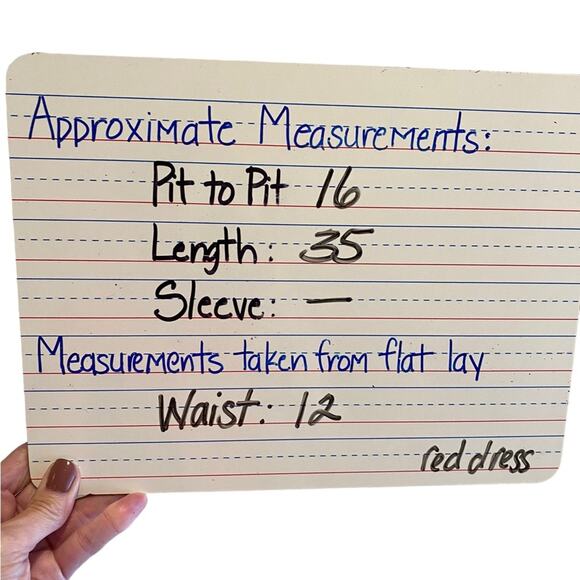 Approximate Measurements:
Pit to Pit 16
Length: 35
Sleeve: —
Measurements taken from flat lay
Waist: 12
red dress